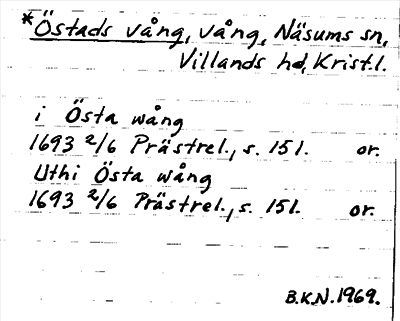 *Östads vång, vång, Näsums sn,
Villands hd, Krist.l.
i Östa wång
1693 2/6 Prästrel., s. 151. or.
Uthi Östa wång
1693 2/6 Prästrel., s. 151. or.
B.K.N. 1969.